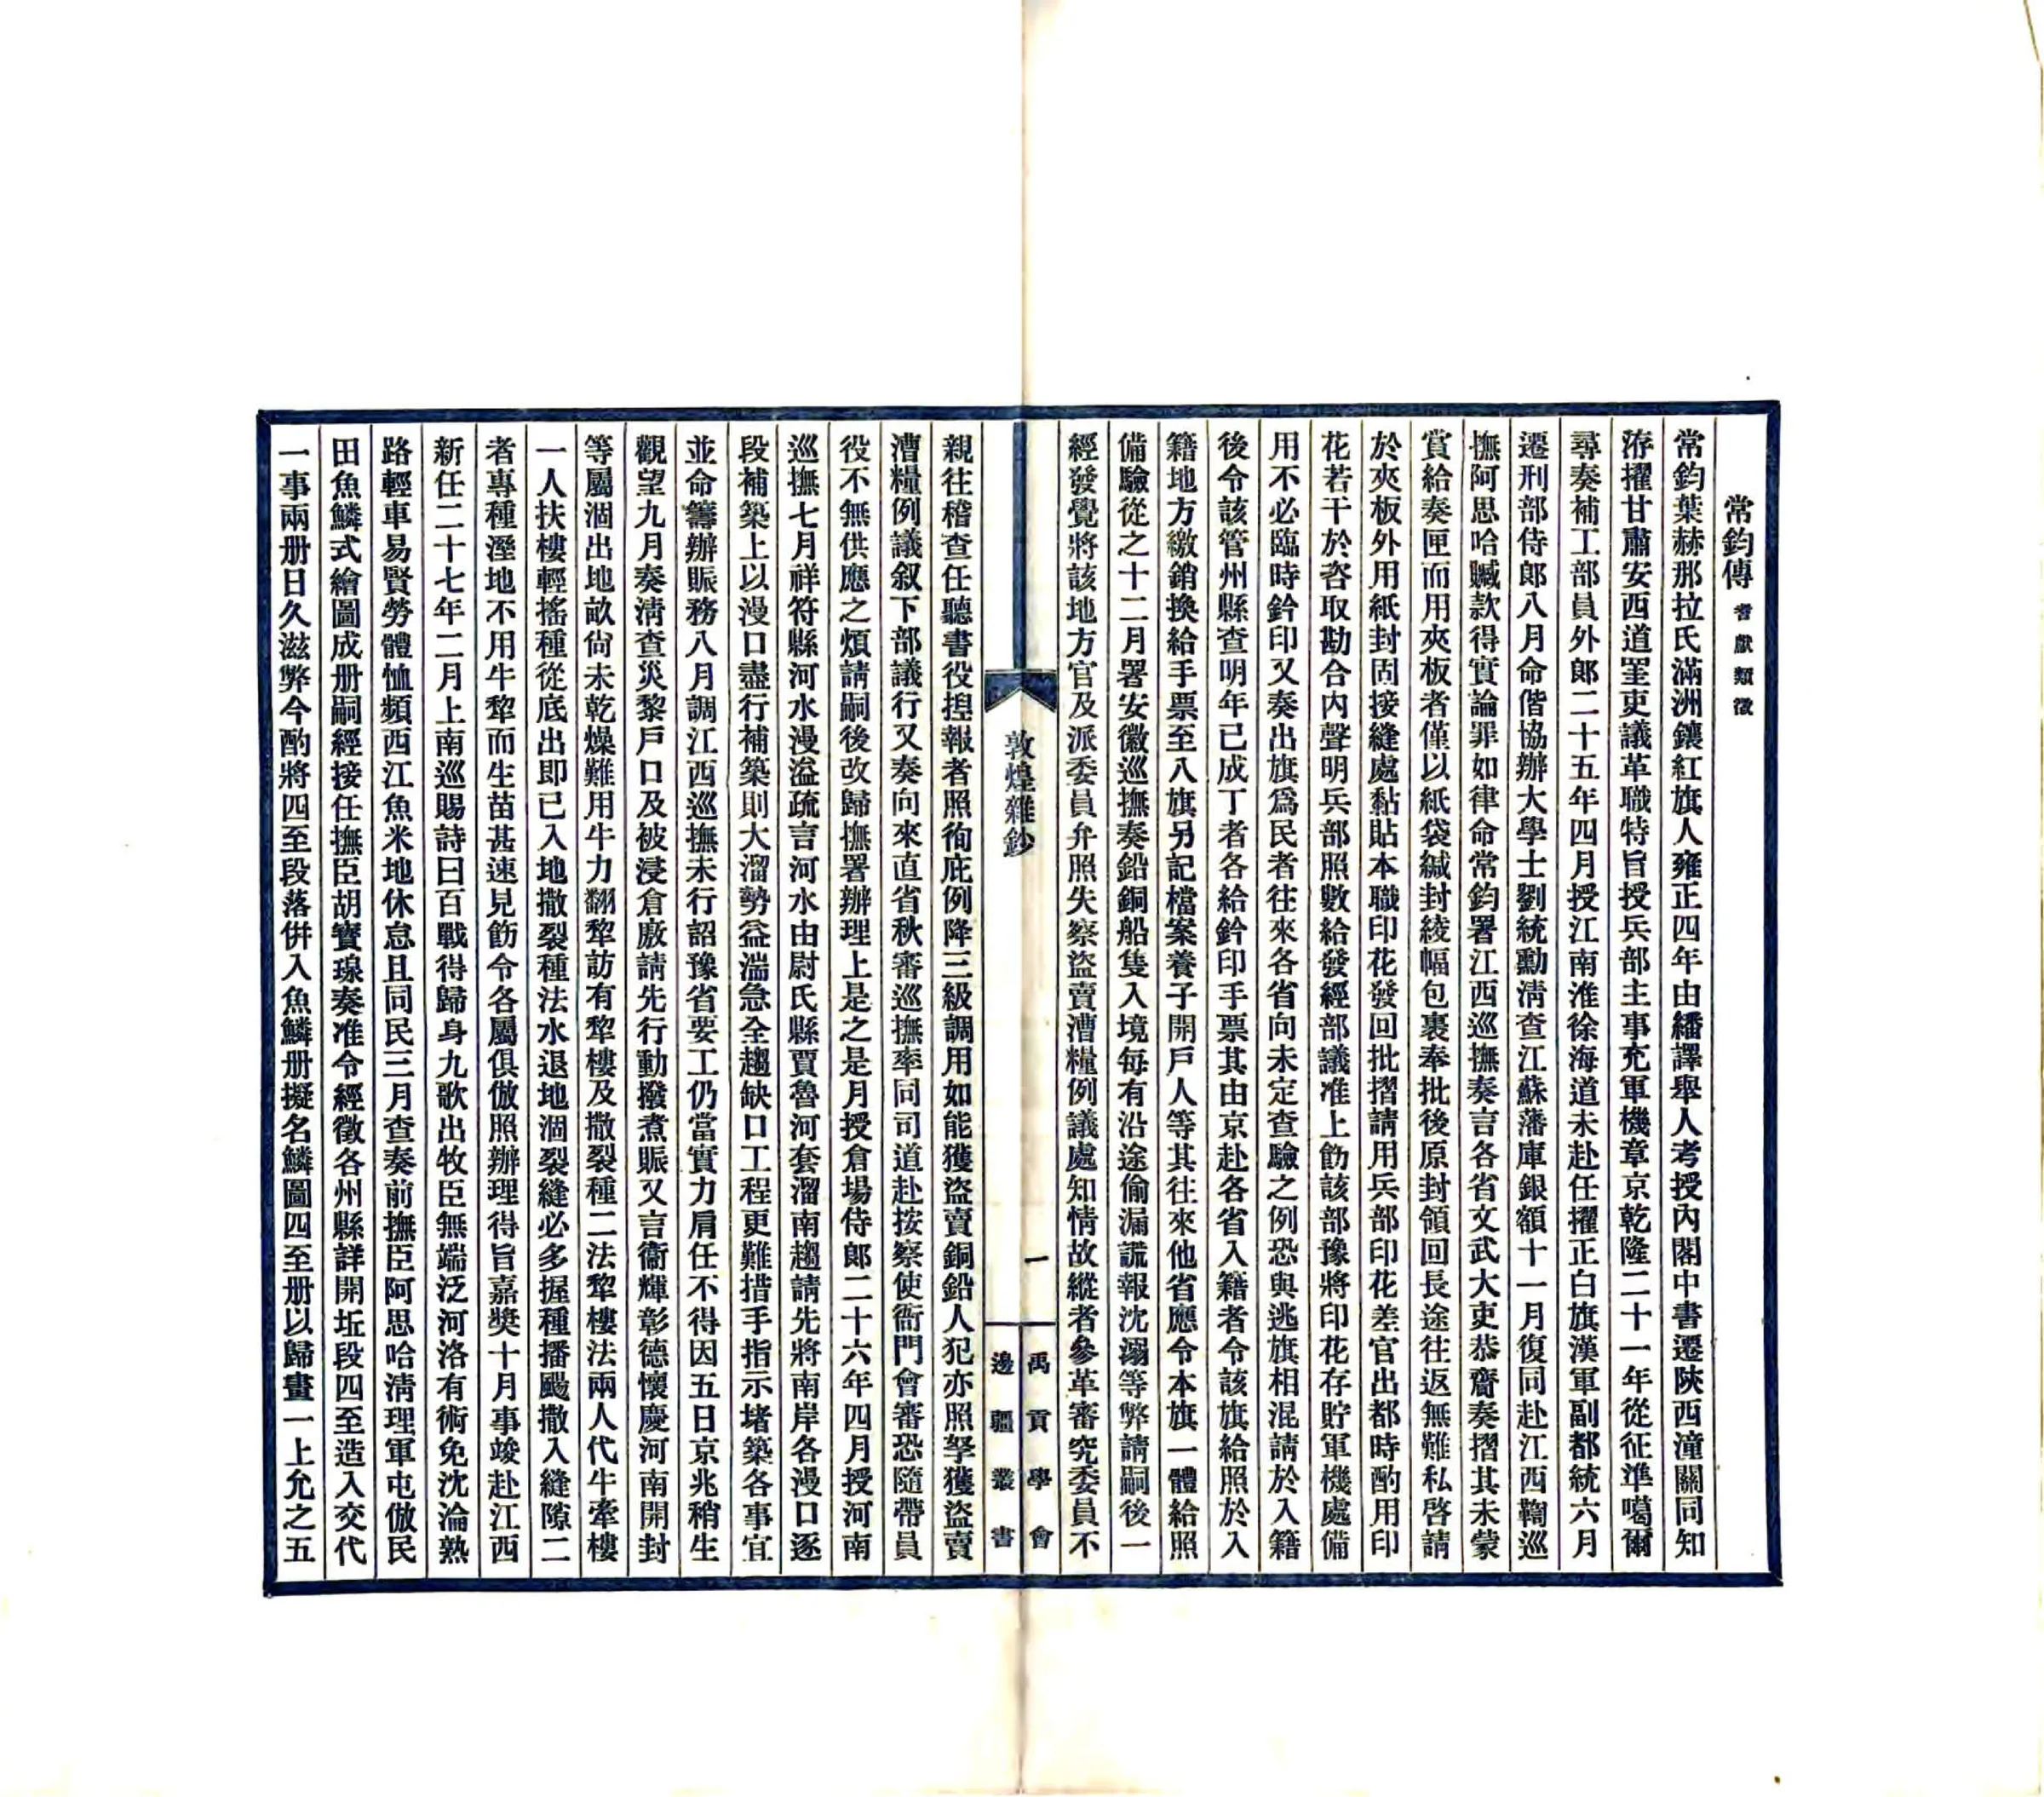 常鈞傳 耆獻類徵
常鈞葉赫那拉氏滿洲鑲紅旗人雍正四年由繙譯舉人考授內閣中書遷陝西潼關同知
洊擢甘肅安西道罣吏議革職特旨授兵部主事充軍機章京乾隆二十一年從征準噶爾
尋奏補工部員外郎二十五年四月授江南淮徐海道未赴任擢正白旗漢軍副都統六月
遷刑部侍郎八月命偕協辦大學士劉統勳清查江蘇藩庫銀額十一月復同赴江西鞫巡
撫阿思哈贓款得實論罪如律命常鈞署江西巡撫奏言各省文武大吏恭齎奏摺其未蒙
賞給奏匣而用夾板者僅以紙袋緘封綾幅包裹奉批後原封領回長途往返無難私啓請
於夾板外用紙封固接縫處黏貼本職印花發回批摺請用兵部印花差官出都時酌用印
花若干於咨取勘合內聲明兵部照數給發經部議准上飭該部豫將印花存貯軍機處備
用不必臨時鈐印又奏出旗爲民者往來各省向未定查驗之例恐與逃旗相混請於入籍
後令該管州縣查明年已成丁者各給鈐印手票其由京赴各省入籍者令該旗給照於入
籍地方繳銷換給手票至八旗另記檔案養子開戶人等其往來他省應令本旗一體給照
備驗從之十二月署安徽巡撫奏鉛銅船隻入境每有沿途偷漏謊報沈溺等弊請嗣後一
經發覺將該地方官及派委員弁照失察盜賣漕糧例議處知情故縱者參革審究委員不
敦煌雜鈔
一
禹貢學會
邊疆叢書
親往稽查任聽書役揑報者照徇庇例降三級調用如能獲盜賣銅鉛人犯亦照拏獲盜賣
漕糧例議叙下部議行又奏向來直省秋審巡撫率同司道赴按察使衙門會審恐隨帶員
役不無供應之煩請嗣後改歸撫署辦理上是之是月授倉場侍郎二十六年四月授河南
巡撫七月祥符縣河水漫溢疏言河水由尉氏縣賈魯河套溜南趨請先將南岸各漫口逐
段補築上以漫口盡行補築則大溜勢益湍急全趨缺口工程更難措手指示堵築各事宜
並命籌辦賑務八月調江西巡撫未行詔豫省要工仍當實力肩任不得因五日京兆稍生
觀望九月奏清查災黎戶口及被浸倉厫請先行動撥煮賑又言衞輝彰德懷慶河南開封
等屬涸出地畝尙未乾燥難用牛力翻犂訪有犂樓及撒裂種二法犂樓法兩人代牛牽樓
一人扶樓輕搖種從底出即已入地撒裂種法水退地涸裂縫必多握種播颺撒入縫隙二
者專種溼地不用牛犂而生苗甚速見飭令各屬俱倣照辦理得旨嘉獎十月事竣赴江西
新任二十七年二月上南巡賜詩曰百戰得歸身九歌出牧臣無端泛河洛有術免沈淪熟
路輕車易賢勞體恤頻西江魚米地休怠且同民三月查奏前撫臣阿思哈清理軍屯倣民
田魚鱗式繪圖成册嗣經接任撫臣胡寶瑔奏准令經徵各州縣詳開坵段四至造入交代
一事兩册日久滋弊今酌將四至段落併入魚鱗册擬名鱗圖四至册以歸畫一上允之五